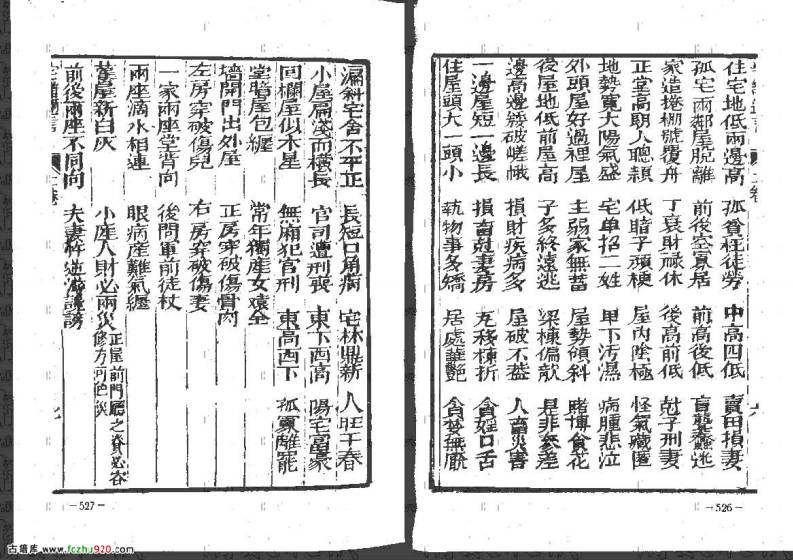 住宅地低兩邊高 孤貧枉徒勞 中高四低 賣田損妻
孤宅兩鄰屋脫離 前後空寡居 前高後低 盲聾蠢迷
家造捲棚號覆舟 丁衰財祿休 後高前低 尅子刑妻
正堂高期人聰穎 低暗子頑梗 屋內陰極 怪氣藏匿
地勢寬大陽氣盛 宅單招二姓 卑下汚濕 病腫悲泣
外頭屋好過裡屋 主弱家無蓄 屋勢傾斜 賭博貪花
後屋地低前屋高 子多終遠逃 梁棟偏欹 是非參差
邊高邊矮破嵯峨 損財疾病多 屋破不葢 人畜災害
一邊屋短一邊長 損畜尅妻房 瓦移棟折 貪婬口舌
住屋頭大一頭小 執物事多嬌 居處華艷 貪婪無厭
－526－
漏斜宅舍不平正 長短口角病 宅林鼎新 人旺千春
小屋扁淺而橫長 官司遭刑喪 東下西高 陽宅富豪
回欄屋似木星 無廂犯官刑 東高西下 孤寡離罷
堂臀屋包纏 常年獨產女 全
墻開門出外屋 正房穿破傷骨肉
左房穿破傷兒 右房穿破傷妻
一家兩座堂背向 後問軍前徒杖
兩座滴水相連 眼病産難氣纏
舊屋新白灰 小產人財必兩災 正屋前門廳之脊必容
修方可
前後兩座不同向 夫妻忤逆 謗
－527－
古籍库 www.fczhu920.com